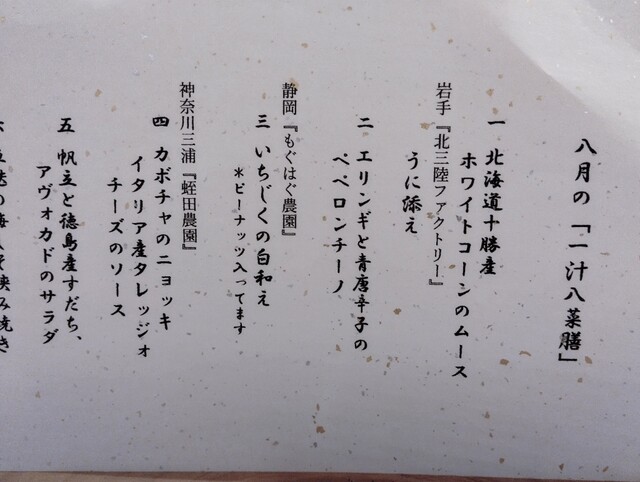 八月の「一汁八菜膳」
一 北海道十勝産
ホワイトコーンのムース
岩手『北三陸ファクトリー』
うに添え
二 エリンギと青唐辛子の
ペペロンチーノ
静岡『もぐはぐ農園』
三 いちじくの白和え
＊ピーナッツ入ってます
神奈川三浦『蛭田農園』
四 カボチャのニョッキ
イタリア産タレッジォ
チーズのソース
五 帆立と徳島産すだち、
アヴォカドのサラダ